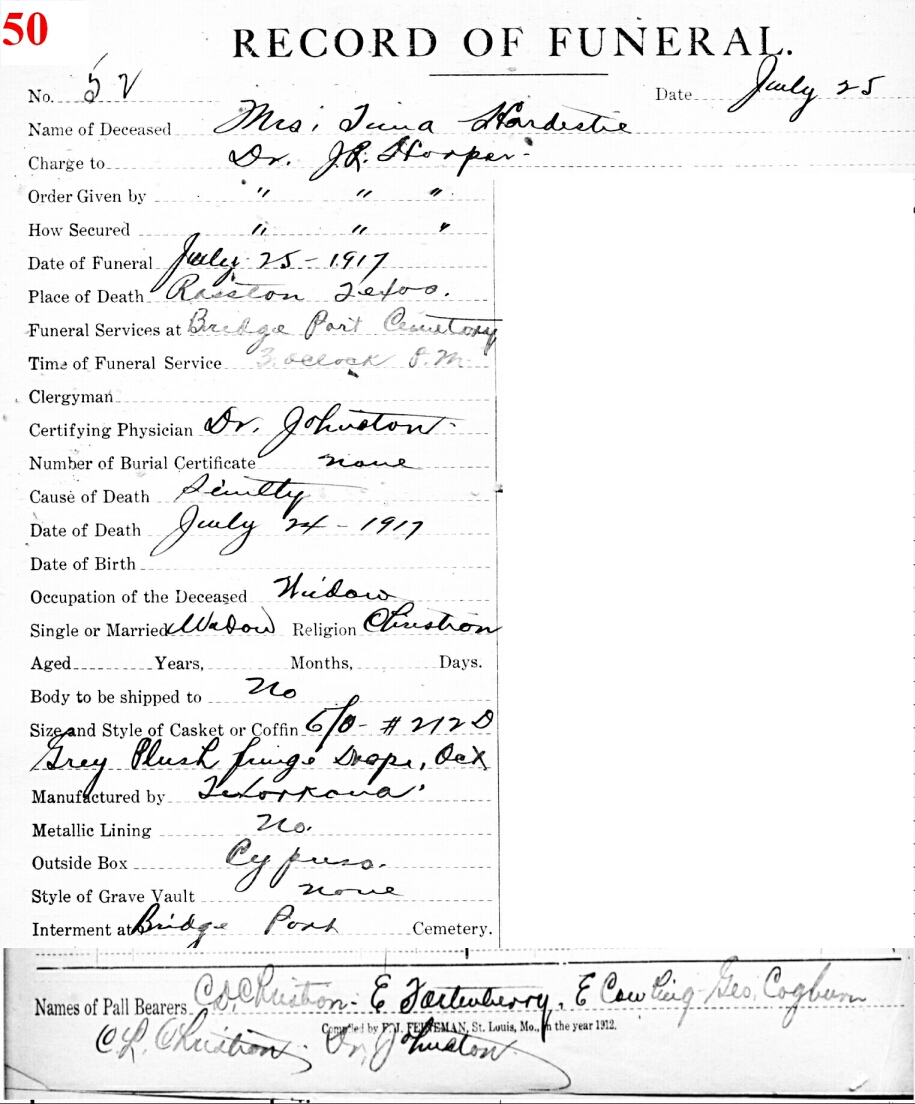 50
RECORD OF FUNERAL.
No. 52 Date July 25
Name of Deceased Mrs. Hardestie
Charge to Dr. J.R. Hooper
Order Given by " " "
How Secured " " "
Date of Funeral July 25 - 1917
Place of Death Texas.
Funeral Services at Bridge Port Cemetory
Time of Funeral Service 3. oclock P.M.
Clergyman
Certifying Physician Dr. Johnston
Number of Burial Certificate none
Cause of Death
Date of Death July 24 - 1917
Date of Birth
Occupation of the Deceased Widow
Single or Married Widow Religion Christion
Aged Years, Months, Days.
Body to be shipped to No
Size and Style of Casket or Coffin 6/0 - # 212 D
Grey Plush fringe Drape,
Manufactured by Texarkana
Metallic Lining No.
Outside Box Cypress.
Style of Grave Vault none
Interment at Bridge Port Cemetery.
Names of Pall Bearers C.D. Christion - E Fortenberry, E Cowling - Geo. Cogburn
Compiled by F. J. FEINEMAN, St. Louis, Mo., in the year 1912.
C.L. Christion, Dr. Johnston